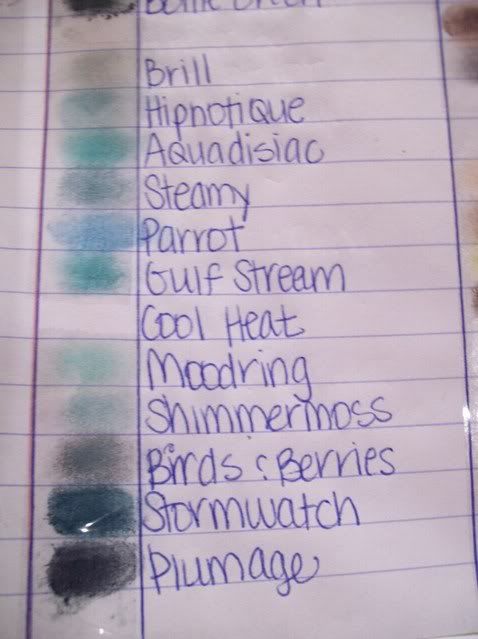 Brill
Hipnotique
Aquadisiac
Steamy
Parrot
Gulf Stream
Cool Heat
Moodring
Shimmermoss
Birds & Berries
Stormwatch
Plumage